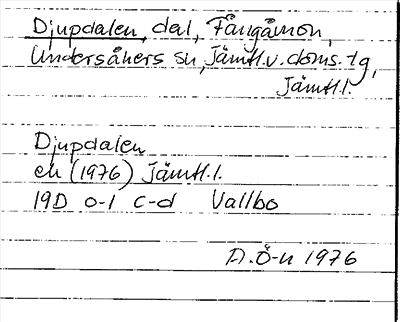 Djupdalen, dal, Fångåmon,
Undersåkers sn, Jämtl.v. doms.tg,
Jämtl.l.
Djupdalen
ek (1976) Jämtl.l.
19D 0-1 c-d Vallbo
A.Ö-n 1976